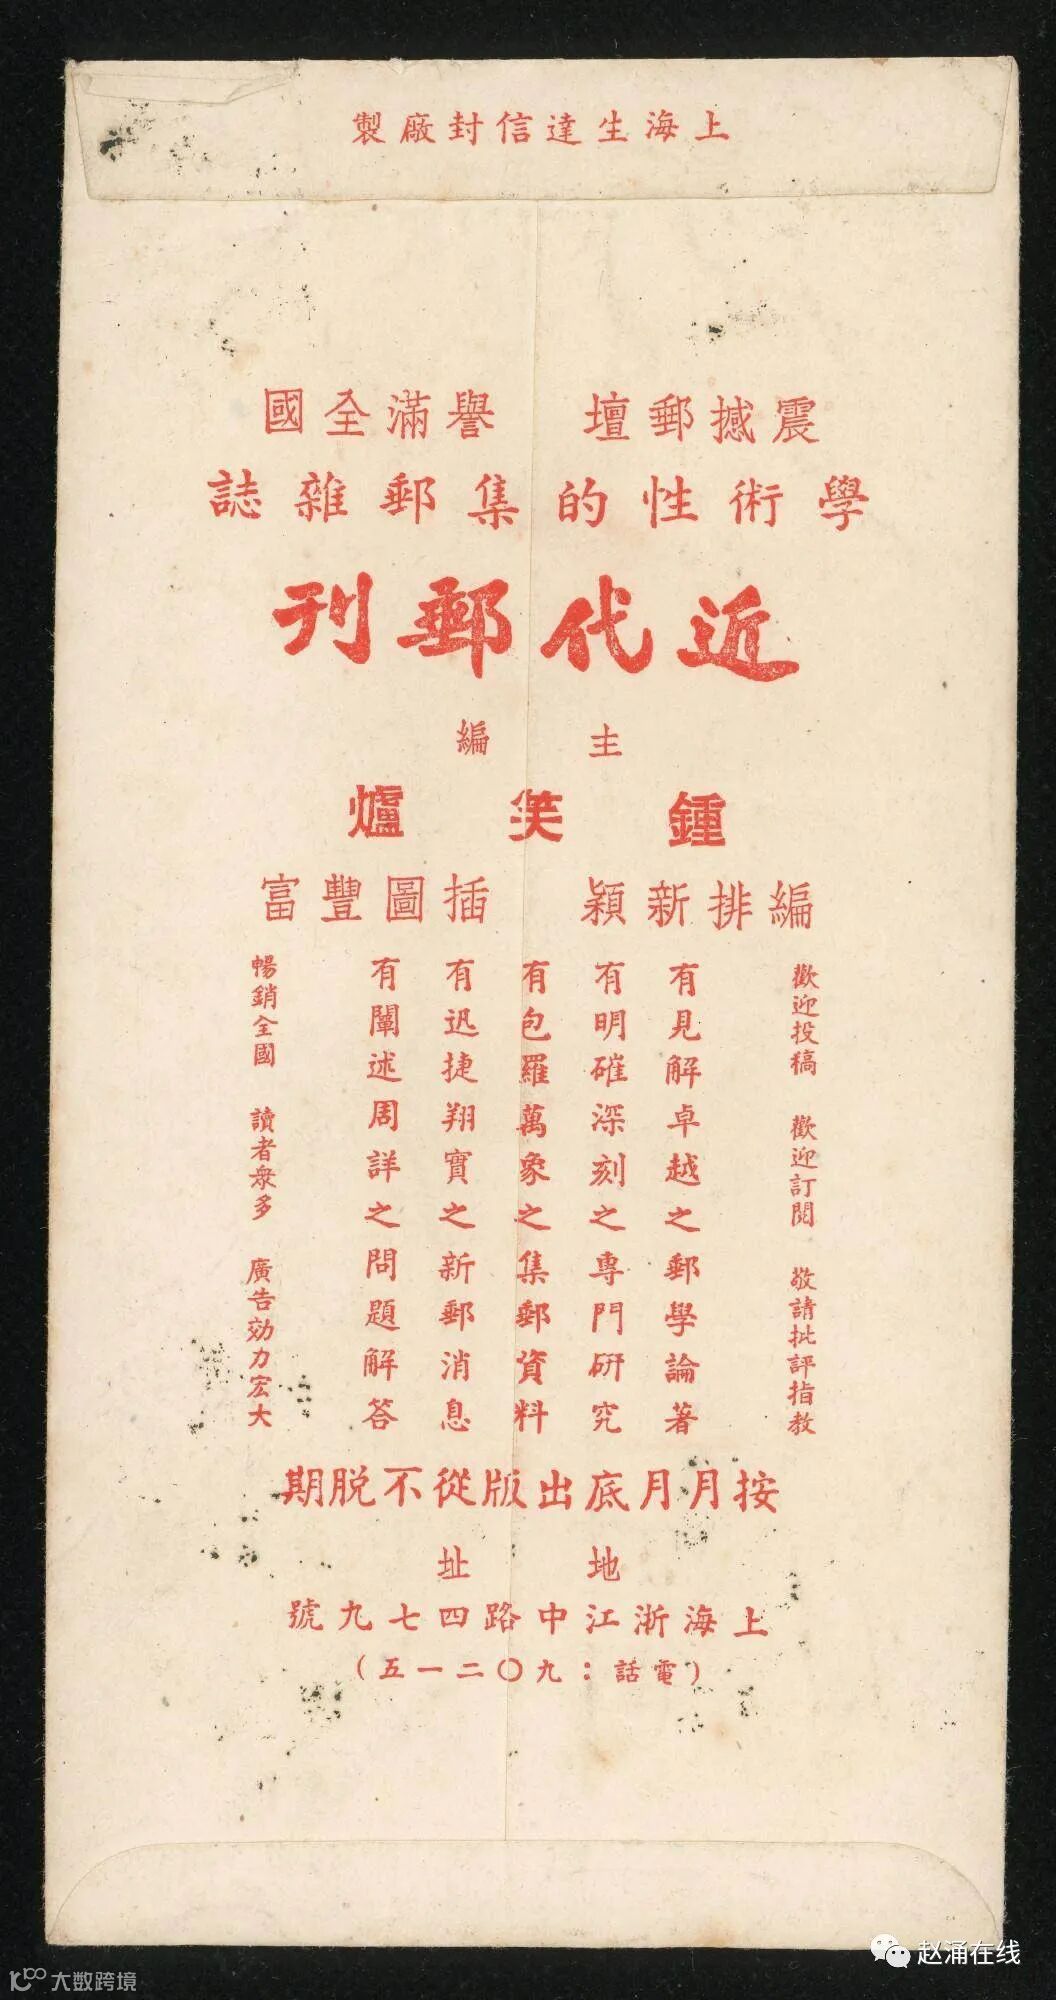 上海生達信封廠製
震撼郵壇　譽滿全國
學術性的集郵雜誌
近代郵刊
主編
鍾笑爐
編排新穎　插圖豐富
歡迎投稿　歡迎訂閱　敬請批評指教
有見解卓越之郵學論著
有明確深刻之專門研究
有包羅萬象之集郵資料
有迅捷翔實之新郵消息
有闡述周詳之問題解答
暢銷全國　讀者衆多　廣告効力宏大
按月月底出版從不脱期
地址
上海浙江中路四七九號
（電話：九〇二一五）
赵涌在线
大数跨境